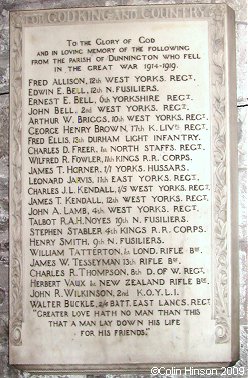 FOR GOD KING AND COUNTRY
TO THE GLORY OF GOD
AND IN LOVING MEMORY OF THE FOLLOWING
FROM THE PARISH OF DUNNINGTON WHO FELL
IN THE GREAT WAR 1914-1919.
FRED ALLISON, 12th WEST YORKS. REGT.
EDWIN E. BELL, 12th N. FUSILIERS.
ERNEST E. BELL, 9th YORKSHIRE REGT.
JOHN BELL, 2nd WEST YORKS. REGT.
ARTHUR W. BRIGGS, 10th WEST YORKS. REGT.
GEORGE HENRY BROWN, 17th K. LIV'L REGT.
FRED ELLIS, 13th DURHAM LIGHT INFANTRY.
CHARLES D. FREER, 1st NORTH STAFFS. REGT.
WILFRED R. FOWLER, 11th KINGS R.R. CORPS.
JAMES T. HORNER, 1/1 YORKS. HUSSARS.
LEONARD JARVIS, 11th EAST YORKS. REGT.
CHARLES J.L. KENDALL, 1/5 WEST YORKS. REGT.
JAMES T. KENDALL, 12th WEST YORKS. REGT.
JOHN A. LAMB, 4th WEST YORKS. REGT.
TALBOT R.A.H. NOYES 19th N. FUSILIERS.
STEPHEN STABLER 4th KINGS R.R. CORPS.
HENRY SMITH, 9th N. FUSILIERS.
WILLIAM TATTERTON, 1st LOND. RIFLE BDE.
JAMES W. TESSEYMAN 13th RIFLE BDE.
CHARLES R. THOMPSON, 8th D. OF W. REGT.
HERBERT VAUX 1st NEW ZEALAND RIFLE BDE.
JOHN R. WILKINSON, 2nd K.O.Y.L.I.
WALTER BUCKLE, 2/4 BATT. EAST LANCS. REGT.
"GREATER LOVE HATH NO MAN THAN THIS
THAT A MAN LAY DOWN HIS LIFE
FOR HIS FRIENDS."
©Colin Hinson 2009